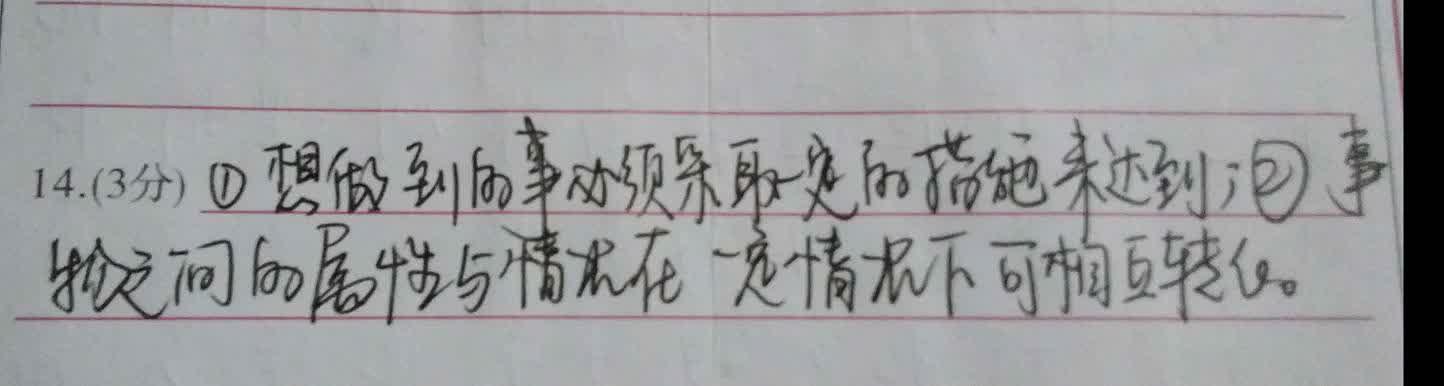 14.(3分) ①想做到的事必须采取一定的措施来达到;②事
物之间的属性与情况在一定情况下可相互转化。